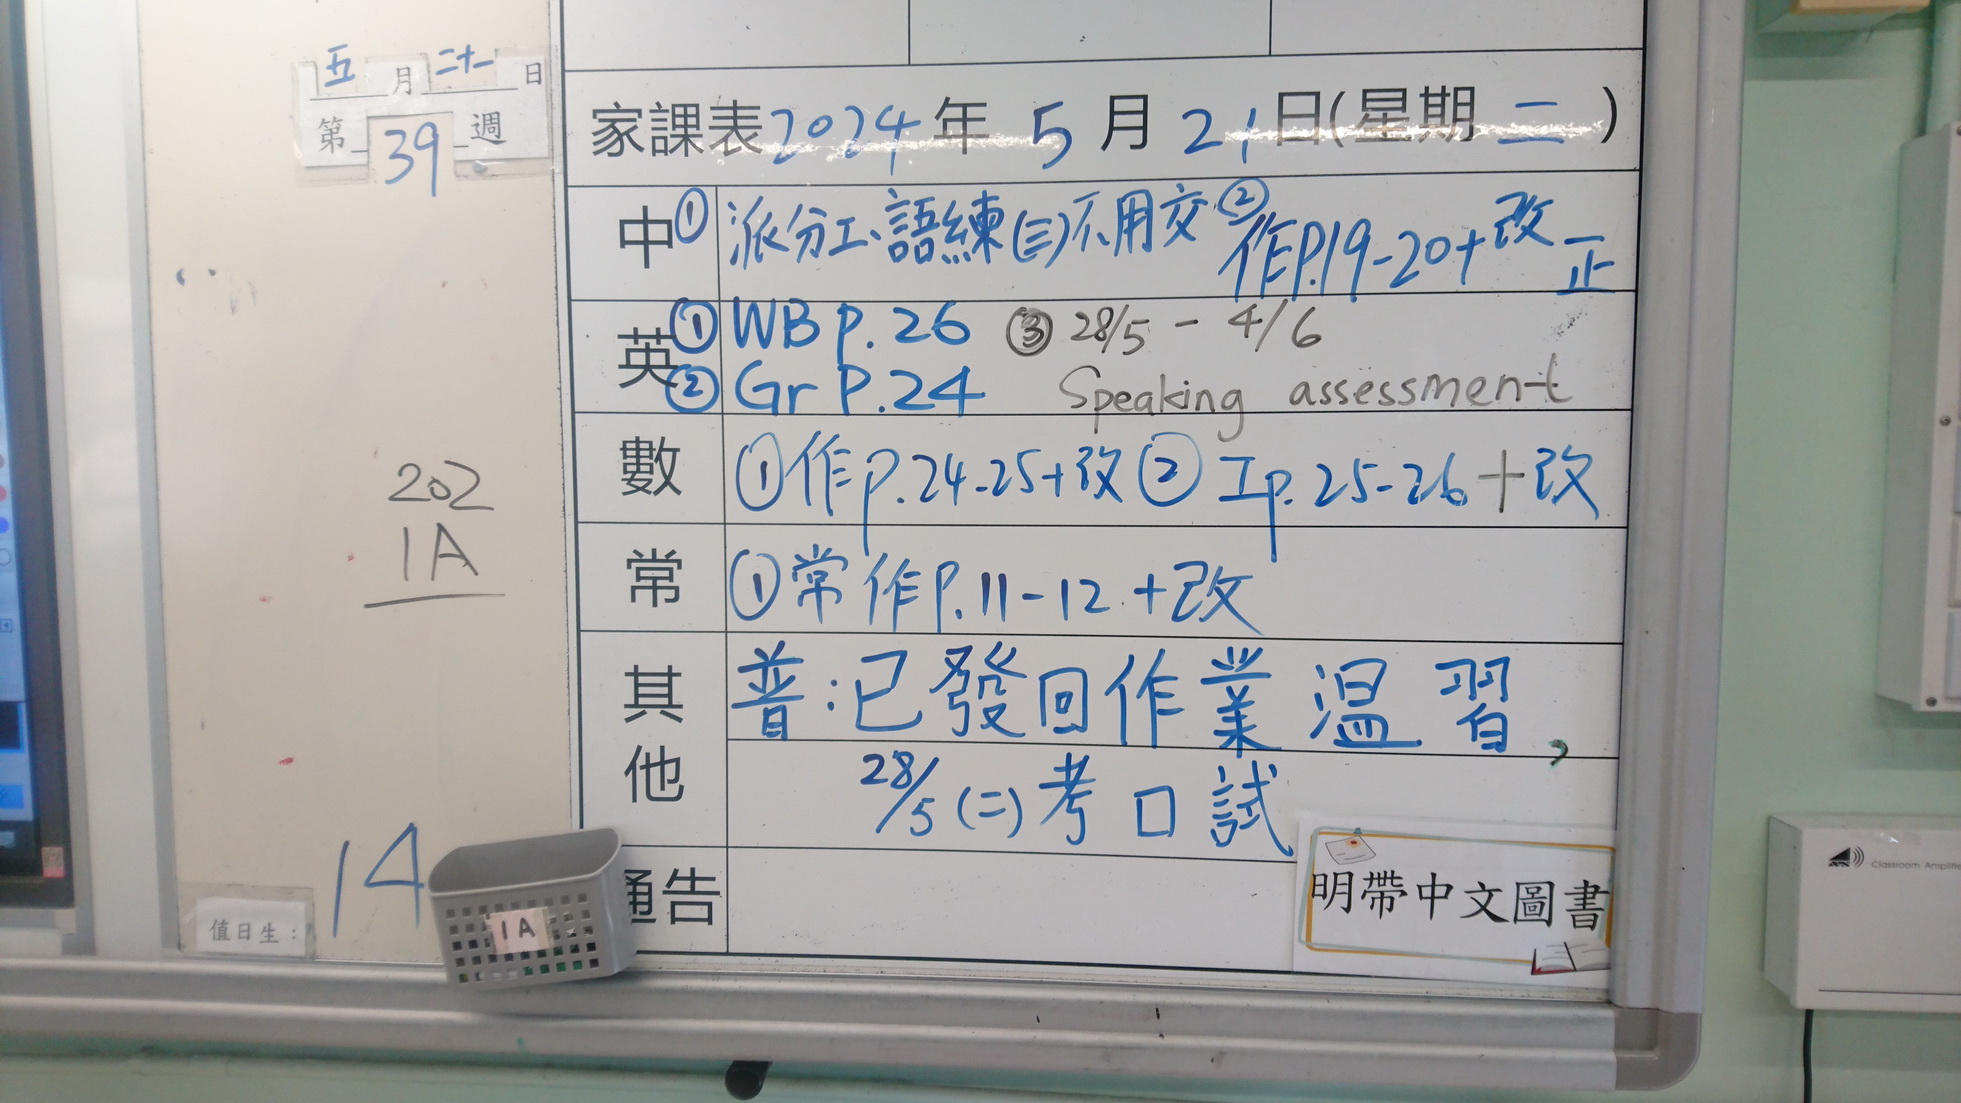 五月二十一日
第39週
202
1A
14
值日生：
1A
家課表2024年5月21日(星期二)
中①派分工、語練(三)不用交②作P.19-20+改正
英①WB P.26 ③28/5 - 4/6
②Gr P.24 Speaking assessment
數①作p.24-25+改②工p.25-26+改
常①常作P.11-12+改
其他 普：已發回作業温習，
28/5(二)考口試
通告
明帶中文圖書
Classroom Amplifie